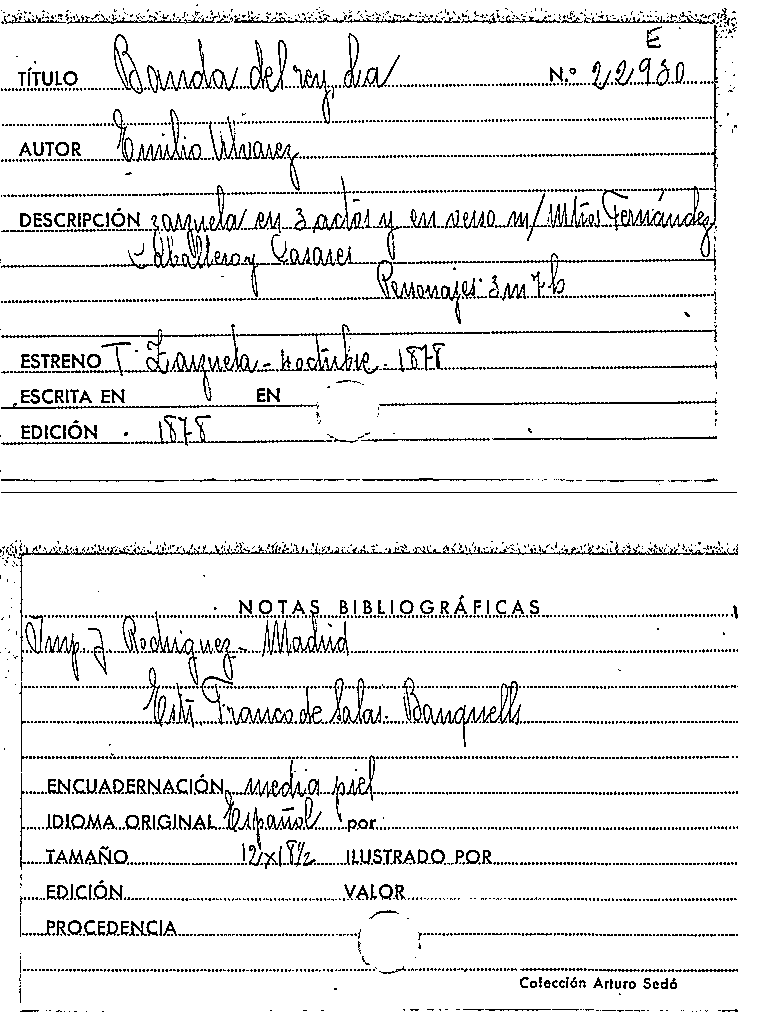 E
TÍTULO Banda del rey, La N.º 22930
AUTOR Emilio Alvarez
DESCRIPCIÓN zarzuela en 3 actos y en verso m/ Mtros Fernández
Caballero y Casares
Personajes: 3 m 7 h
ESTRENO T. Zarzuela - octubre - 1878
ESCRITA EN EN
EDICIÓN 1878
NOTAS BIBLIOGRÁFICAS
Imp. J. Rodriguez - Madrid
Franco de Salas - Banquells
ENCUADERNACIÓN media piel
IDIOMA ORIGINAL Español por
TAMAÑO 12x18½ ILUSTRADO POR
EDICIÓN VALOR
PROCEDENCIA
Colección Arturo Sedó